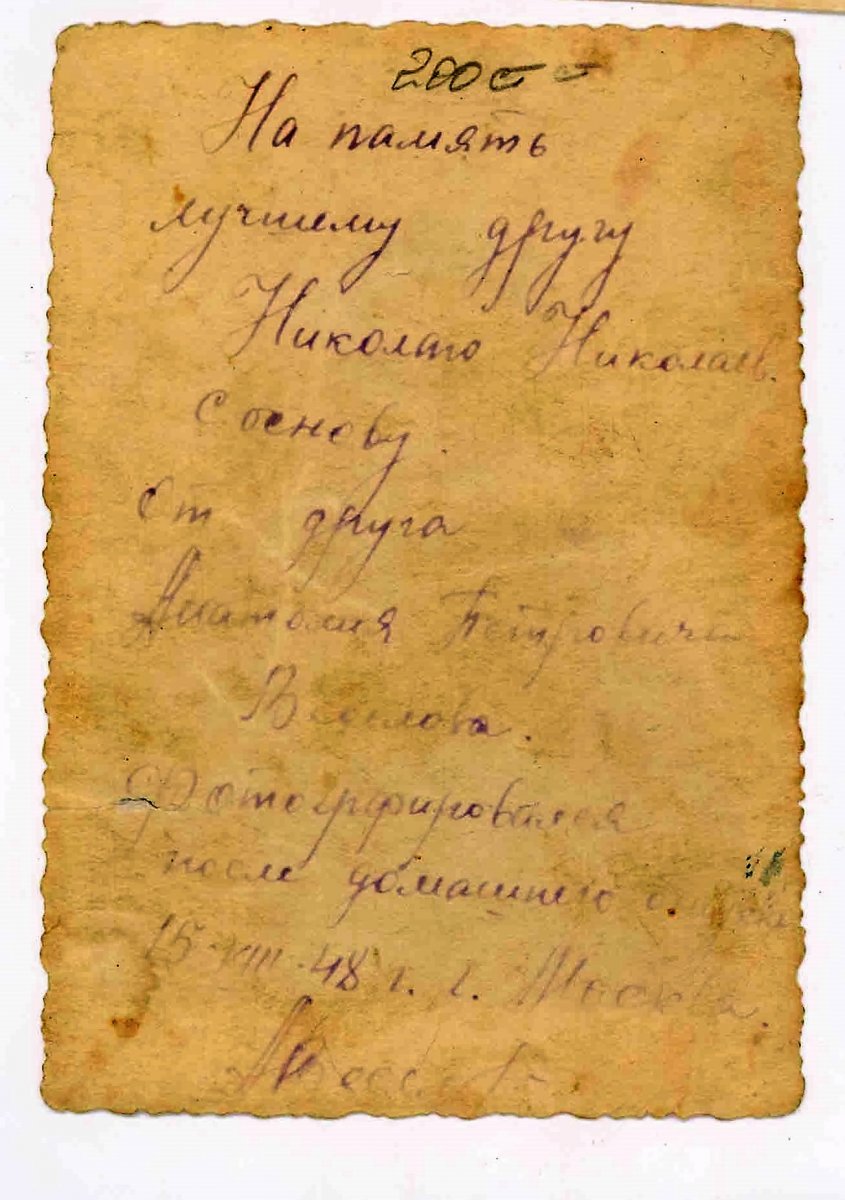 200
На память
лучшему другу
Николаю Николаев.
Соснову.
От друга
Анатолия Петровича
Веселова.
Фотогрфировался
после домашнего отпуска
15-VIII-48 г. г. Москва.